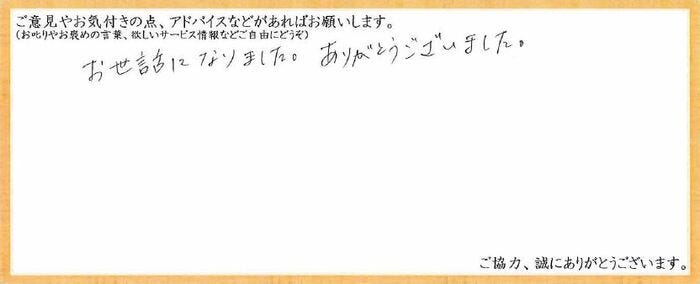 ご意見やお気付きの点、アドバイスなどがあればお願いします。
(お叱りやお褒めの言葉、欲しいサービス情報などご自由にどうぞ)
お世話になりました。ありがとうございました。
ご協力、誠にありがとうございます。